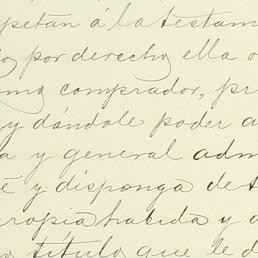 petán á la testam
por derecho, ella o
mo comprador, pr
y dándole poder a
a y general adm
é y disponga de t
ropia habida y a
título que le d